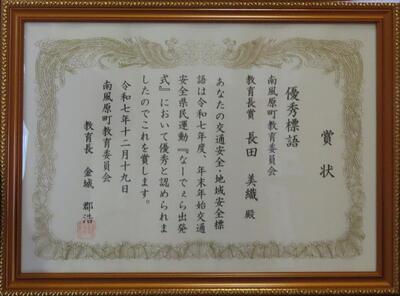 賞状
優秀標語
南風原町教育委員会
教育長賞 長田 美織 殿
あなたの交通安全・地域安全標
語は令和七年度、年末年始交通
安全県民運動『なーでぇら出発
式』において優秀と認められま
したのでこれを賞します。
令和七年十二月十九日
南風原町教育委員会
教育長 金城 郡浩